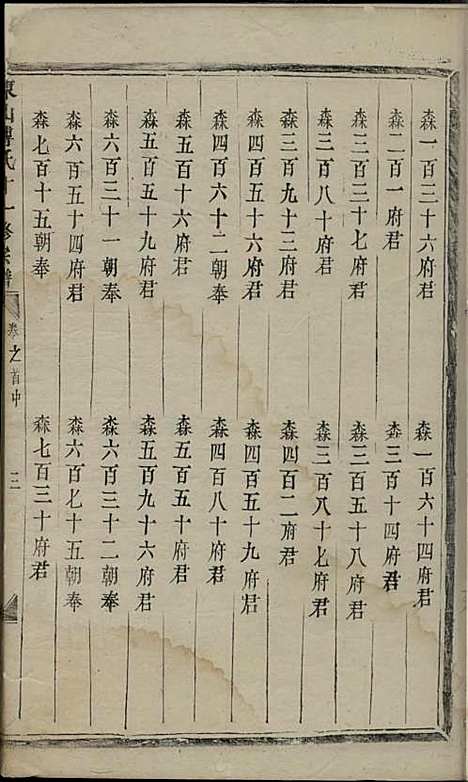 森一百三十六府君
森一百六十四府君
森二百一府君
森三百十四府君
森三百三十七府君
森三百五十八府君
森三百八十府君
森三百八十七府君
森三百九十三府君
森四百二府君
森四百五十六府君
森四百五十九府君
森四百六十二朝奉
森四百八十府君
森五百十六府君
森五百五十府君
森五百五十九府君
森五百九十六府君
森六百三十一朝奉
森六百三十二朝奉
森六百五十四府君
森六百七十五朝奉
森七百十五朝奉
森七百三十府君
東山傅氏十一修宗譜
卷之首中
三